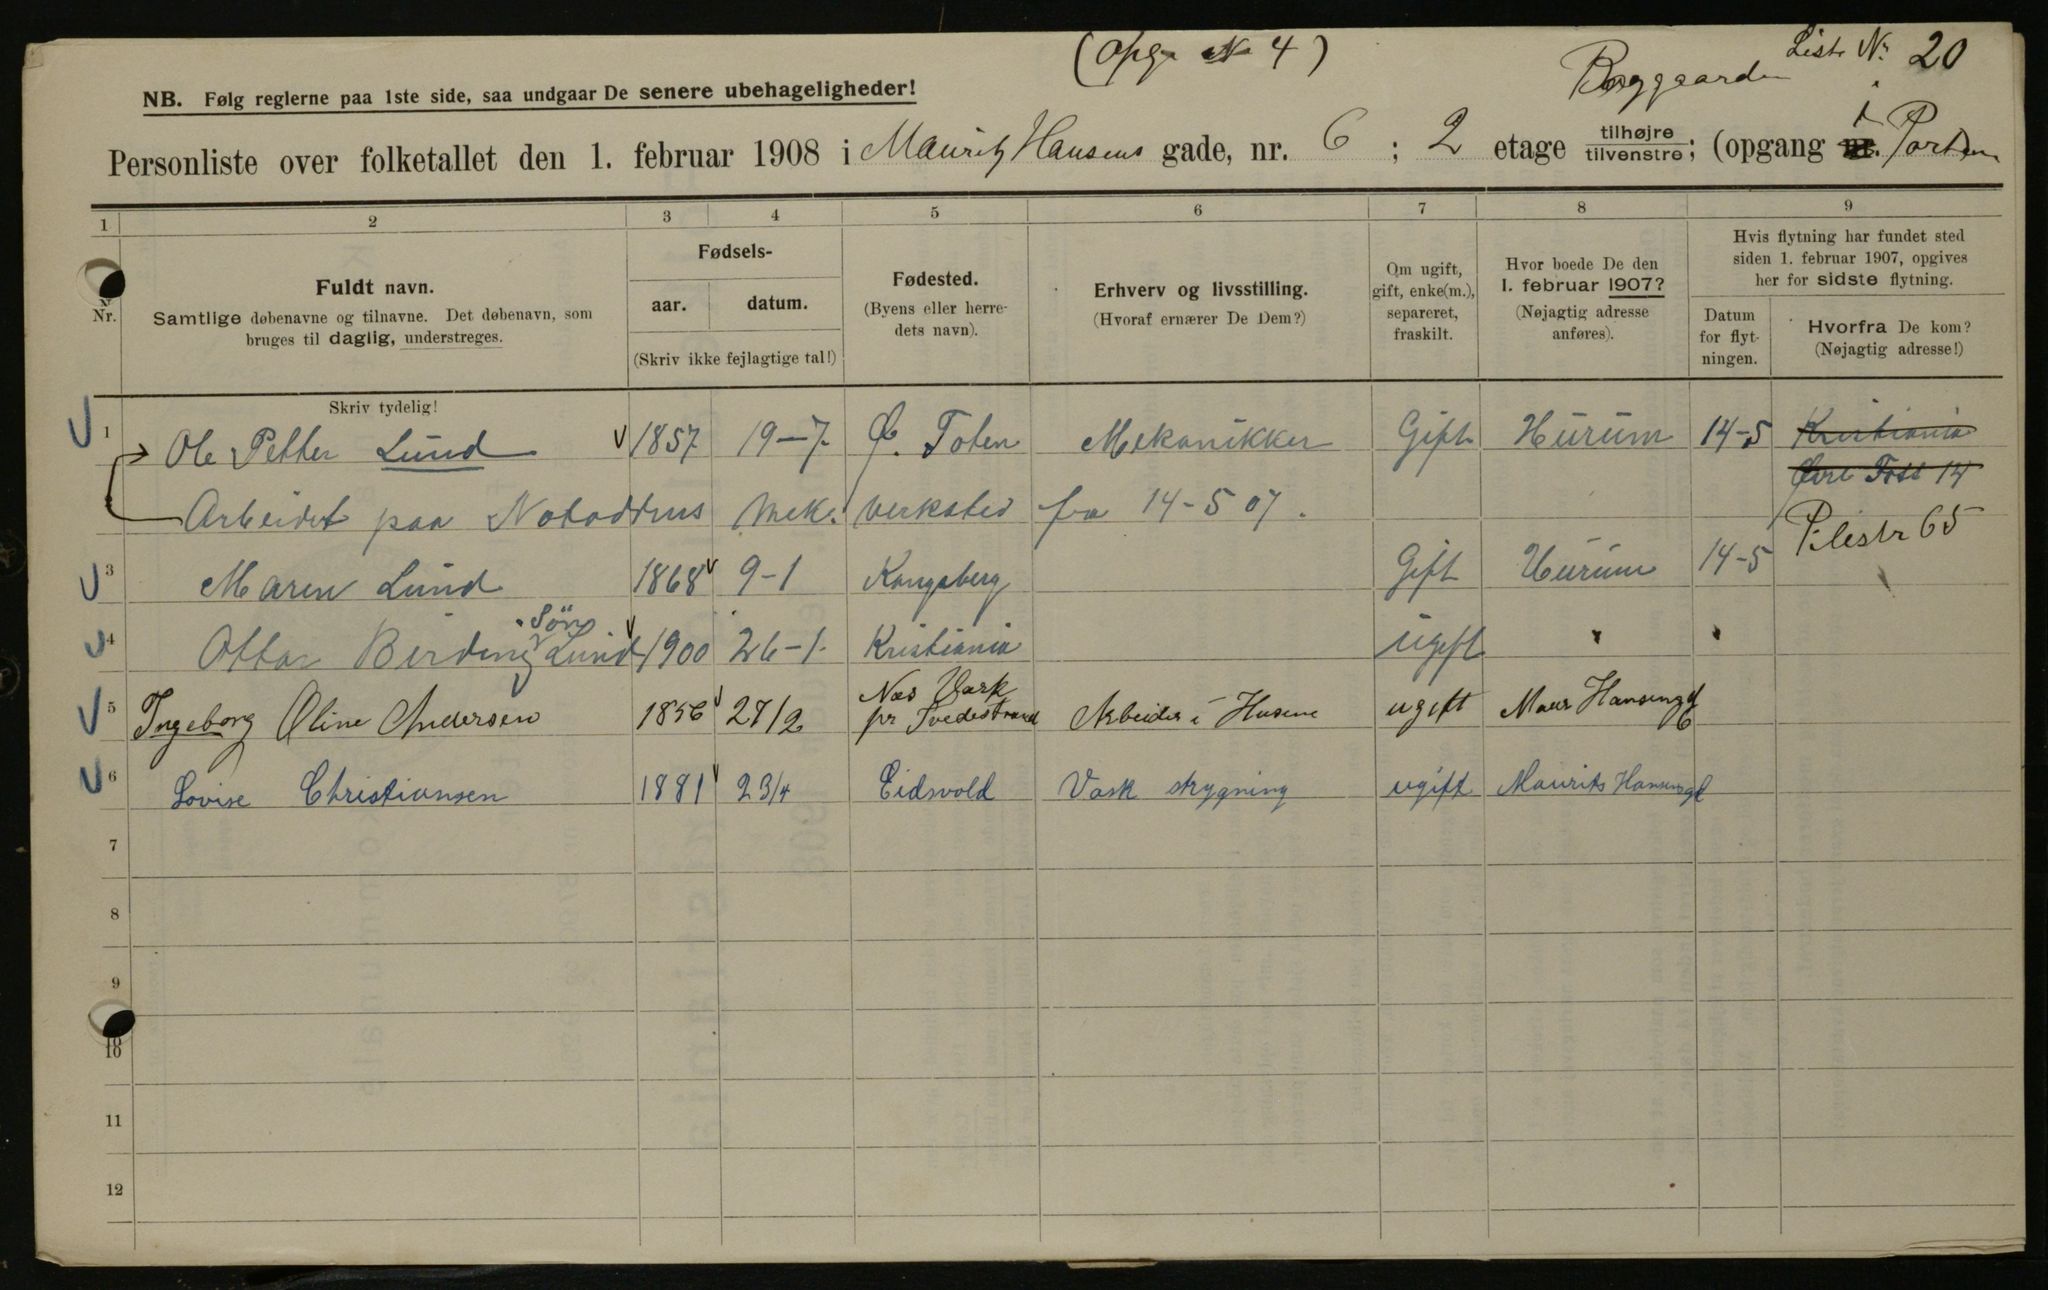 (Opg. N 4)
Liste Nr. 20
Baggaarden
NB. Følg reglerne paa 1ste side, saa undgaar De senere ubehageligheder!
Personliste over folketallet den 1. februar 1908 i Mauritz Hansens gade, nr. 6; 2 etage tilhøjre tilvenstre; (opgang nr. i Porten
1 2 3 4 5 6 7 8 9
Nr.
Fuldt navn.
Samtlige døbenavne og tilnavne. Det døbenavn, som
bruges til daglig, understreges.
Skriv tydelig!
Fødsels-
aar. datum.
(Skriv ikke fejlagtige tal!)
Fødested.
(Byens eller herre-
dets navn).
Erhverv og livsstilling.
(Hvoraf ernærer De Dem?)
Om ugift,
gift, enke(m.),
separeret,
fraskilt.
Hvor boede De den
1. februar 1907?
(Nøjagtig adresse
anføres).
Hvis flytning har fundet sted
siden 1. februar 1907, opgives
her for sidste flytning.
Datum
for flyt-
ningen.
Hvorfra De kom?
(Nøjagtig adresse!)
1 Ole Petter Lund 1857 19-7. Ø. Toten Mekanikker Gift Hurum 14-5 Kristiania
Øvre Foss 14
Arbeidet paa Notoddens Mek. verksted fra 14-5 07.
Pilestr 65
3 Maren Lund 1868 9-1 Kongsberg Gift Hurum 14-5
Søn
4 Ottar Birding Lund 1900 26-1. Kristiania ugift " "
5 Ingeborg Oline Andersen 1856 27/2 Næs Værk
pr Tvedestrand Arbeider i Husene ugift Maur Hansensg 6
6 Lovise Christiansen 1881 23/4 Eidsvold Vask strygning ugift Maurits Hansensg 6
7
8
9
10
11
12